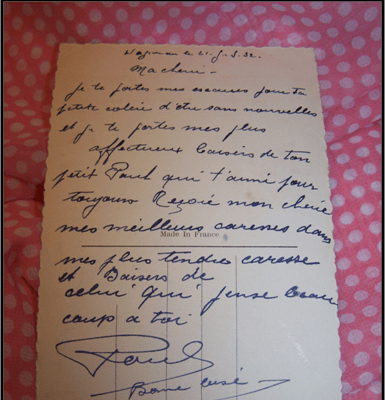 le 21. 5. 52.
Ma cheri -
je te portes mes excuses pour ta
petite colère d'être sans nouvelles
et je te portes mes plus
affectueux baisers de ton
petit Paul qui t'aimé pour
toujours Reçoie mon cherie
mes meilleurs careses dans
Made In France
mes plus tendre caresse
et Baisers de
celui qui pense beau
coup a toi
Paul
Bonne